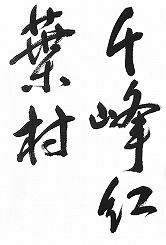 千峰红
葉村